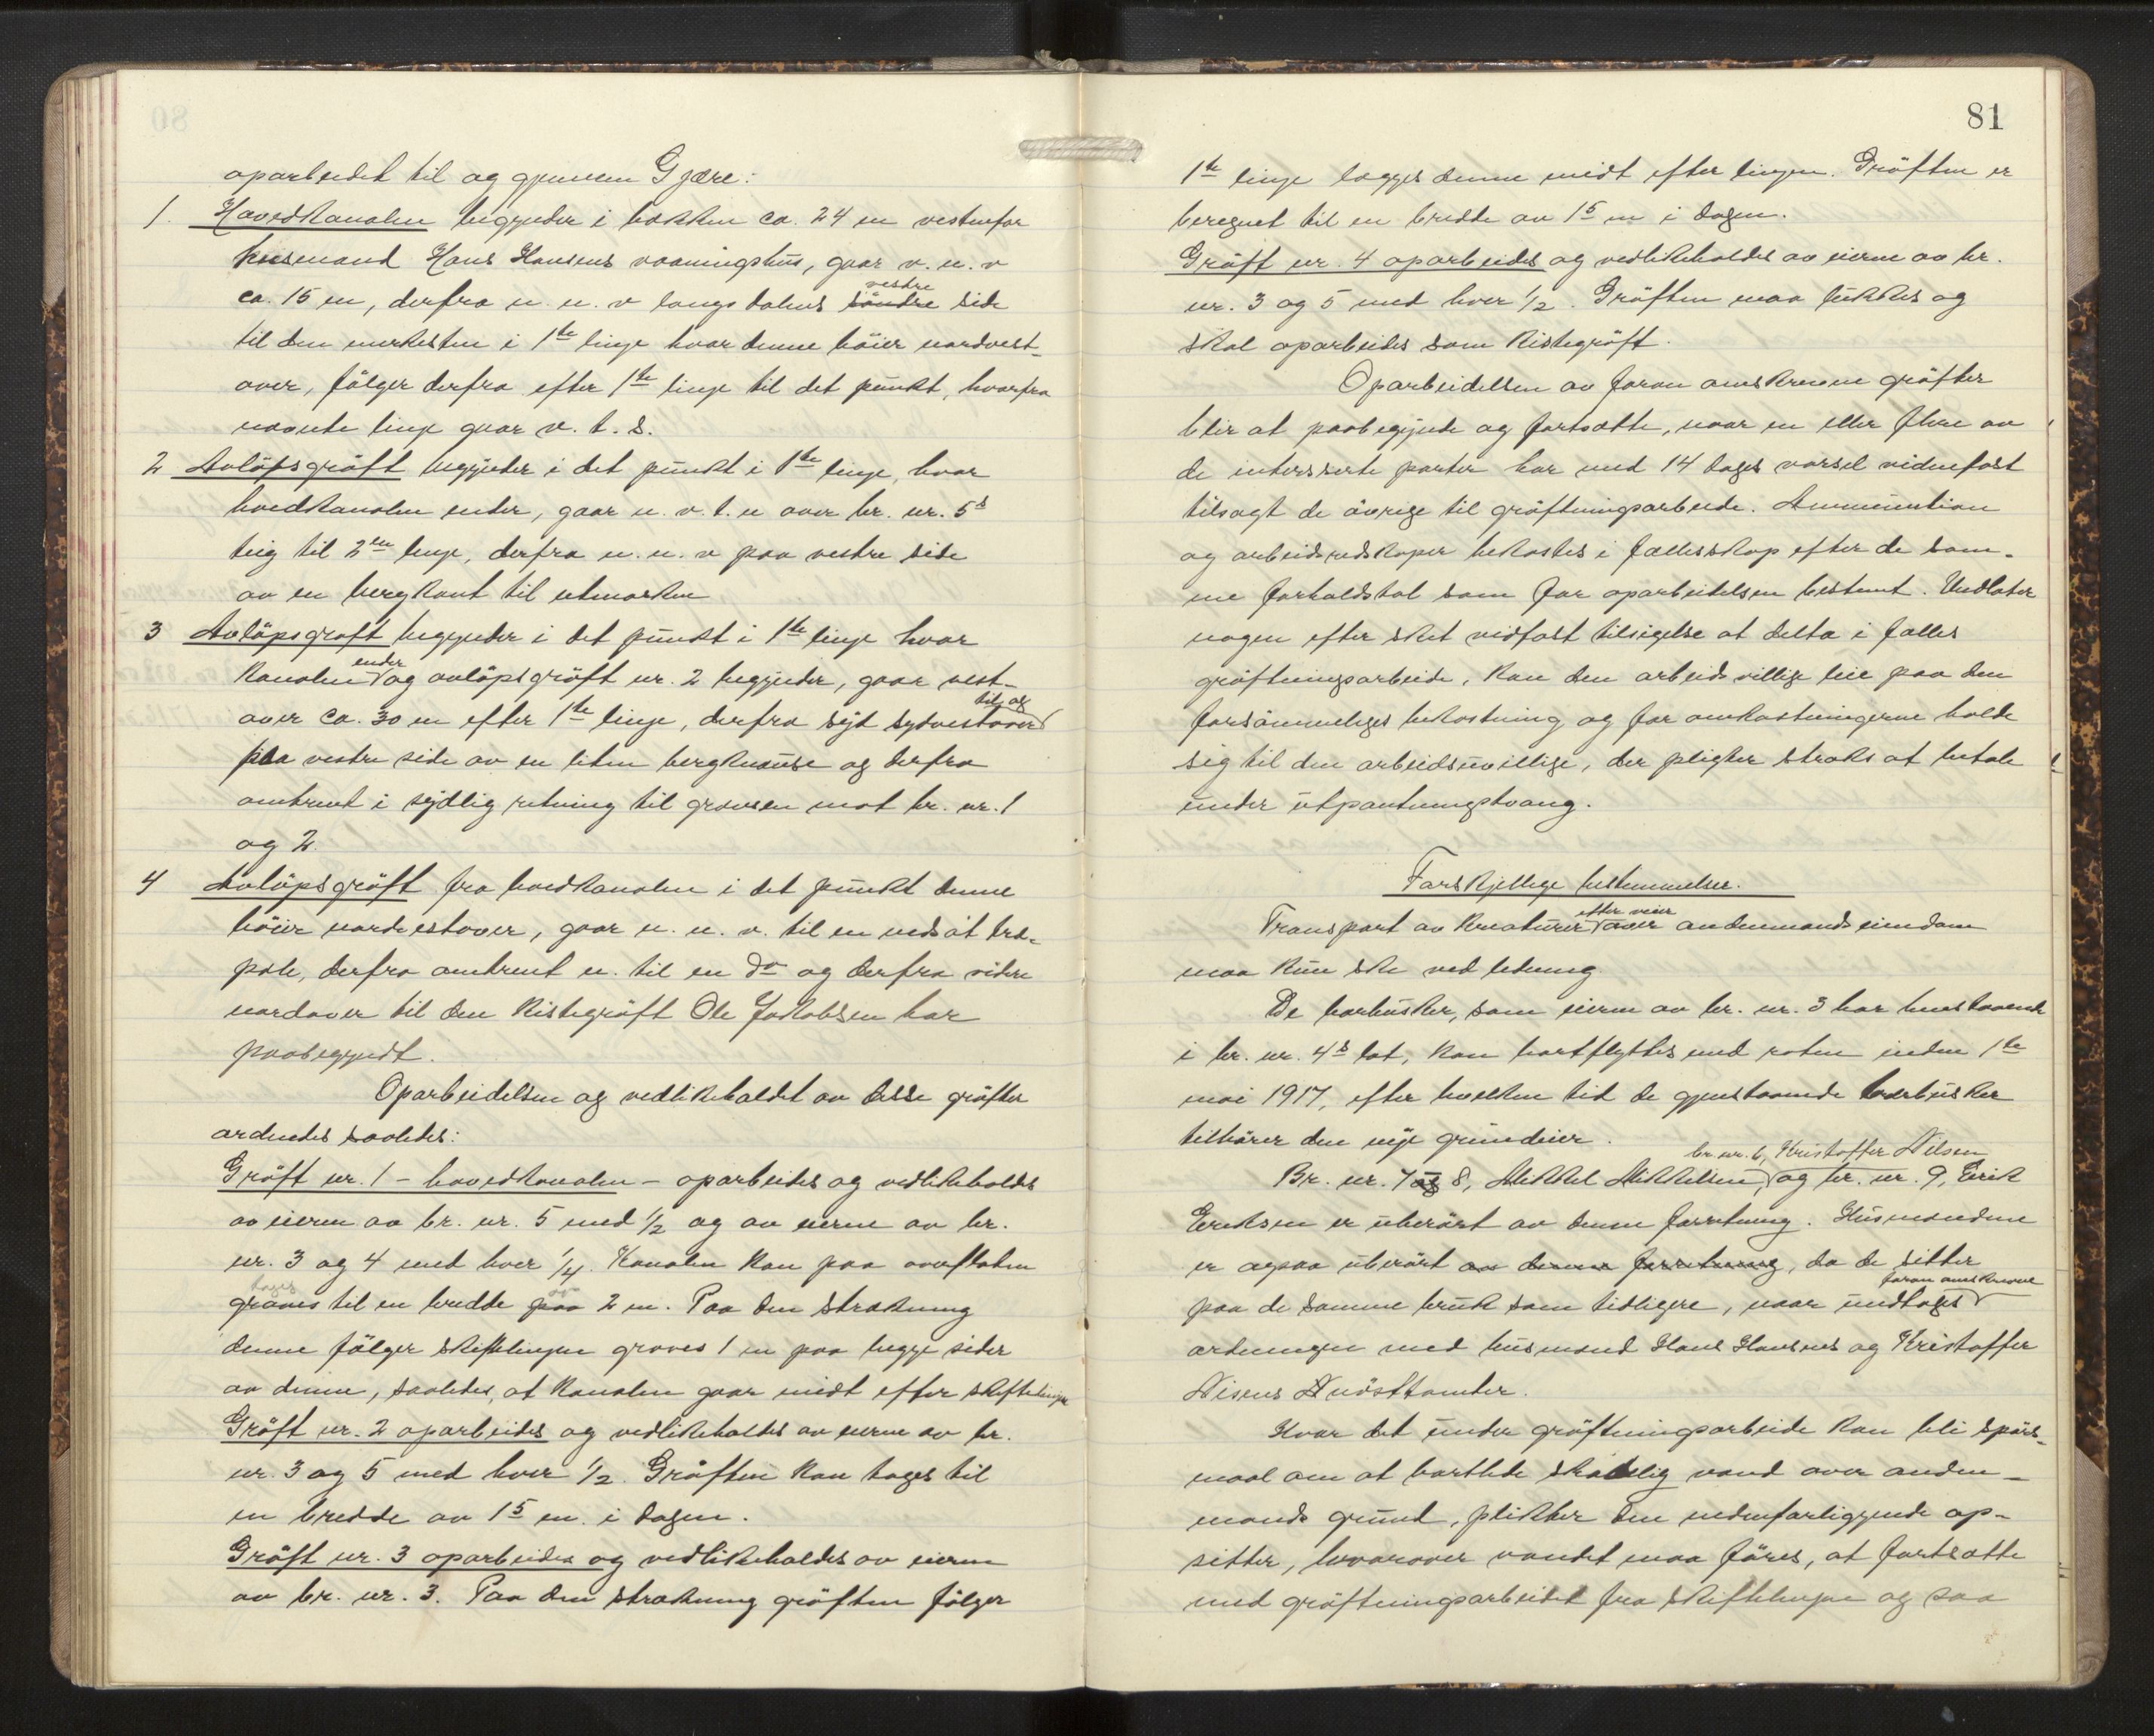 oparbeidet til og gjennem Gjære:
1. Hovedkanalen begynder i bækken ca. 24 m vestenfor
husmand Hans Hansens vaaningshus, gaar v. n. v
ca. 15 m, derfra n. n. v langs dalens søndre vestre side
til den merkesten i 1ste linje hvor denne böier nordvest-
over, fölger derfra efter 1ste linje til det punkt, hvorfra
nævnte linje gaar v. t. s.
2 Avlöpsgröft begynder i det punkt i 1ste linje, hvor
hovedkanalen ender, gaar n. v. t. n over br. nr. 5s
teig til 2den linje, derfra n. n. v paa vestre side
av en bergkant til utmarken
3 Avlöpsgröft begynder i det punkt i 1ste linje hvor
kanalen ender og avlöpsgröft nr. 2 begynder, gaar vest-
over ca. 30 m efter 1ste linje, derfra syd sydvestover til og
paa vestre side av en liten bergknause og derfra
omtrent i sydlig retning til grænsen mot br. nr. 1
og 2.
4 Avlöpsgröft fra hovedkanalen i det punkt denne
böier nordvestover, gaar n. n. v. til en nedsat træ-
pæle, derfra omtrent n. til en do og derfra videre
nordover til den kistegröft Ole Jakobsen har
paabegyndt.
Oparbeidelsen og vedlikeholdet av disse gröfter
ordnedes saaledes:
Gröft nr. 1 - hovedkanalen - oparbeides og vedlikeholdes
av eieren av br. nr. 5 med 1/2 og av eierne av br.
nr. 3 og 4 med hver 1/4. Kanalen kan paa overflaten
graves tages til en bredde paa av 2 m. Paa den strækning
denne fölger skiftelinjen graves 1 m paa begge sider
av denne, saaledes, at kanalen gaar midt efter skiftelinjen
Gröft nr. 2 oparbeides og vedlikeholdes av eierne av br.
nr. 3 og 5 med hver 1/2. Gröften kan tages til
en bredde av 15 m. i dagen.
Gröft nr. 3 oparbeides og vedlikeholdes av eieren
av br. nr. 3. Paa den strækning gröften fölger
81
1ste linje lægges denne midt efter linjen. Gröften er
beregnet til en bredde av 15 m i dagen.
Gröft nr. 4 oparbeides og vedlikeholdes av eierne av br.
nr. 3 og 5 med hver 1/2. Gröften maa lukkes og
skal oparbeides som kistegröft.
Oparbeidelsen av foran omskrevne gröfter
blir at paabegynde og fortsætte, naar en eller flere av
de interesserte parter har med 14 dages varsel vidnefast
tilsagt de övrige til gröftningsarbeide. Ammunition
og arbeidsredskaper bekostes i fællesskap efter de sam-
me forholdstal som for oparbeidelsen bestemt. Undlater
nogen efter sket vidfast tilsigelse at delta i fælles
gröftningsarbeide, kan den arbeidsvillige leie paa den
forsömmeliges bekostning og for omkostningerne holde
sig til den arbeidsuvillige, der pligter straks at betale
under utpantningstvang.
Forskjellige bestemmelser.
Transport av kreaturer efter veier over andenmands eiendom
maa kun ske ved leding.
De bærbusker, som eieren av br. nr. 3 har henstaaende
i br. nr. 4s lot, kan bortflyttes med roten inden 1ste
mai 1917, efter hvilken tid de gjenstaaende bærbusker
tilhörer den nye grundeier.
Br. nr. 7 og 8, Mikkel Mikkelsen, br. nr. 6, Kristoffer Nilsen og br. nr. 9, Erik
Eriksen er uberört av denne forretning. Husmændene
er ogsaa uberört av denne forretning, da de sitter
paa de samme bruk som tidligere, naar undtages foran omskrevne
ordningen med husmand Hans Hansens og Kristoffer
Nissens nausttomter.
Hvor det under gröftningsarbeide kan bli spörs-
maal om at bortlede skadelig vand over anden-
mands grund, plikter den nedenforliggende op-
sitter, hvorover vandet maa föres, at fortsætte
med gröftningsarbeidet fra skiftelinjen og saa